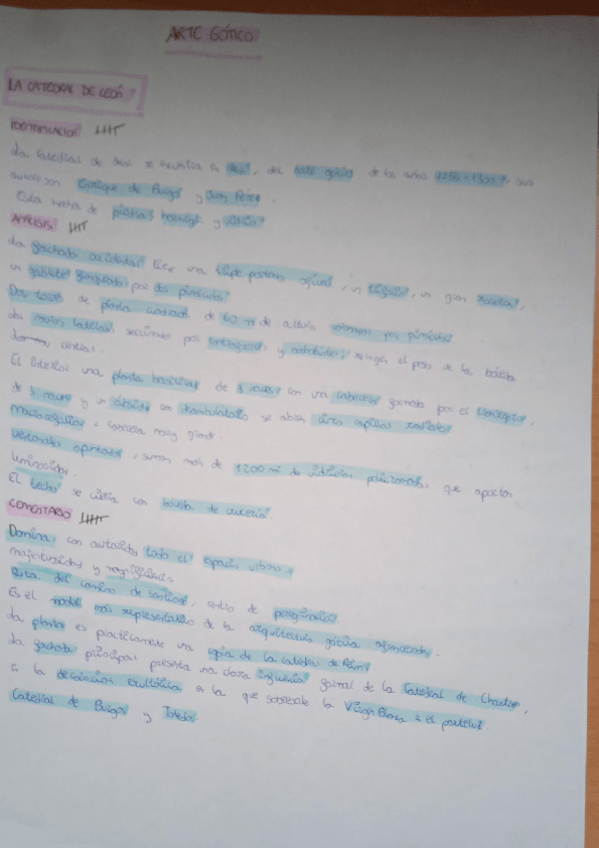 ARTE GÓTICO
LA CATEDRAL DE LEÓN
IDENTIFICACIÓN
La Catedral de León se encuentra en León, del arte gótico de los años 1255-1302, sus
sucesores Enrique de Burgos y Juan Pérez.
Está hecha de piedras y vidrio
ANÁLISIS
La fachada occidental tiene una triple portada ojival, un triforio, un gran rosetón,
un gablete flanqueado por dos pináculos
Dos torres de planta cuadrada de 60 m de altura por pináculos
Las naves laterales, por contrafuertes y arbotantes, recogen el peso de la bóveda
central.
El interior una planta basilical de 3 naves con una cabecera formada por el transepto,
de 3 naves y un ábside con deambulatorio se abren cinco capillas radiales
muy grande.
Ventanales apuntados, suman más de 1200 m² de vidrieras policromadas que aportan
luminosidad.
El techo se cubre con bóveda de crucería.
COMENTARIO
Domina con autoridad todo el espacio urbano
majestuosidad y
Ruta del camino de Santiago, centro de peregrinación
Es el modelo más representativo de la arquitectura gótica afrancesada.
La planta es prácticamente una copia de la catedral de Reims
La fachada principal presenta una clara influencia formal de la Catedral de Chartres,
a la decoración escultórica, en la que sobresale la Virgen Blanca en el parteluz
Catedral de Burgos y Toledo